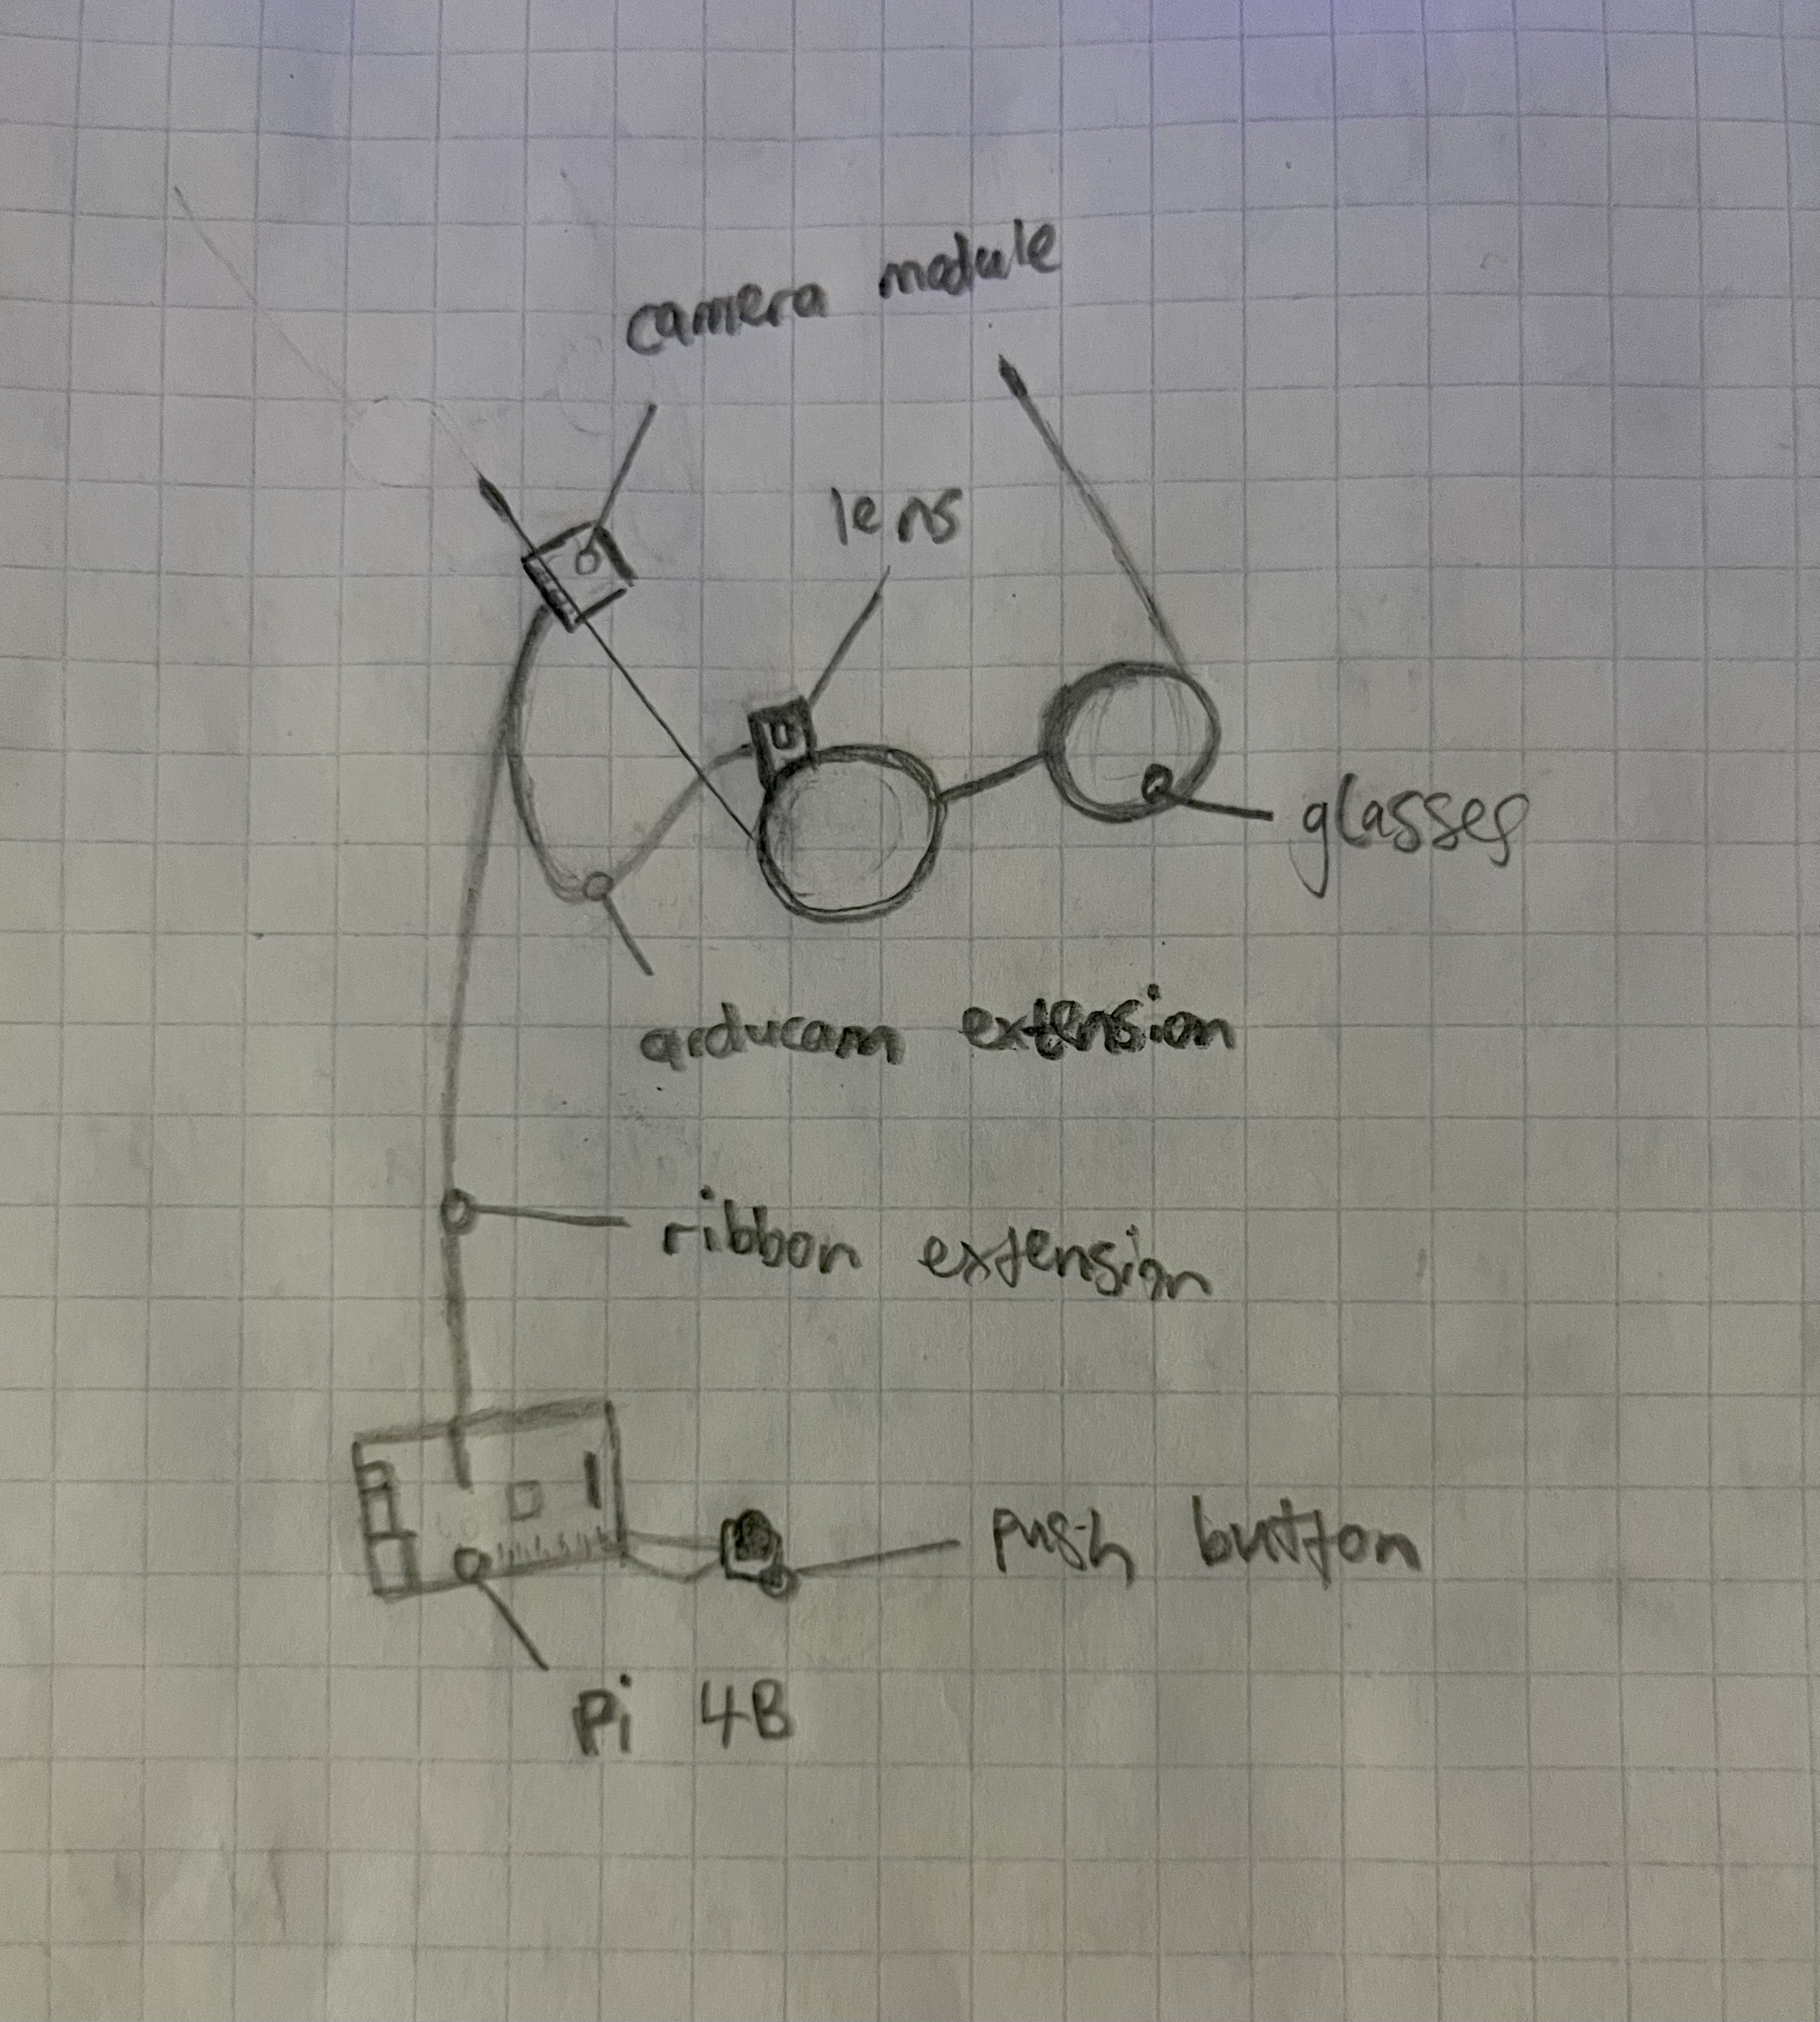 camera module
lens
glasses
arducam extension
ribbon extension
push button
Pi 4B